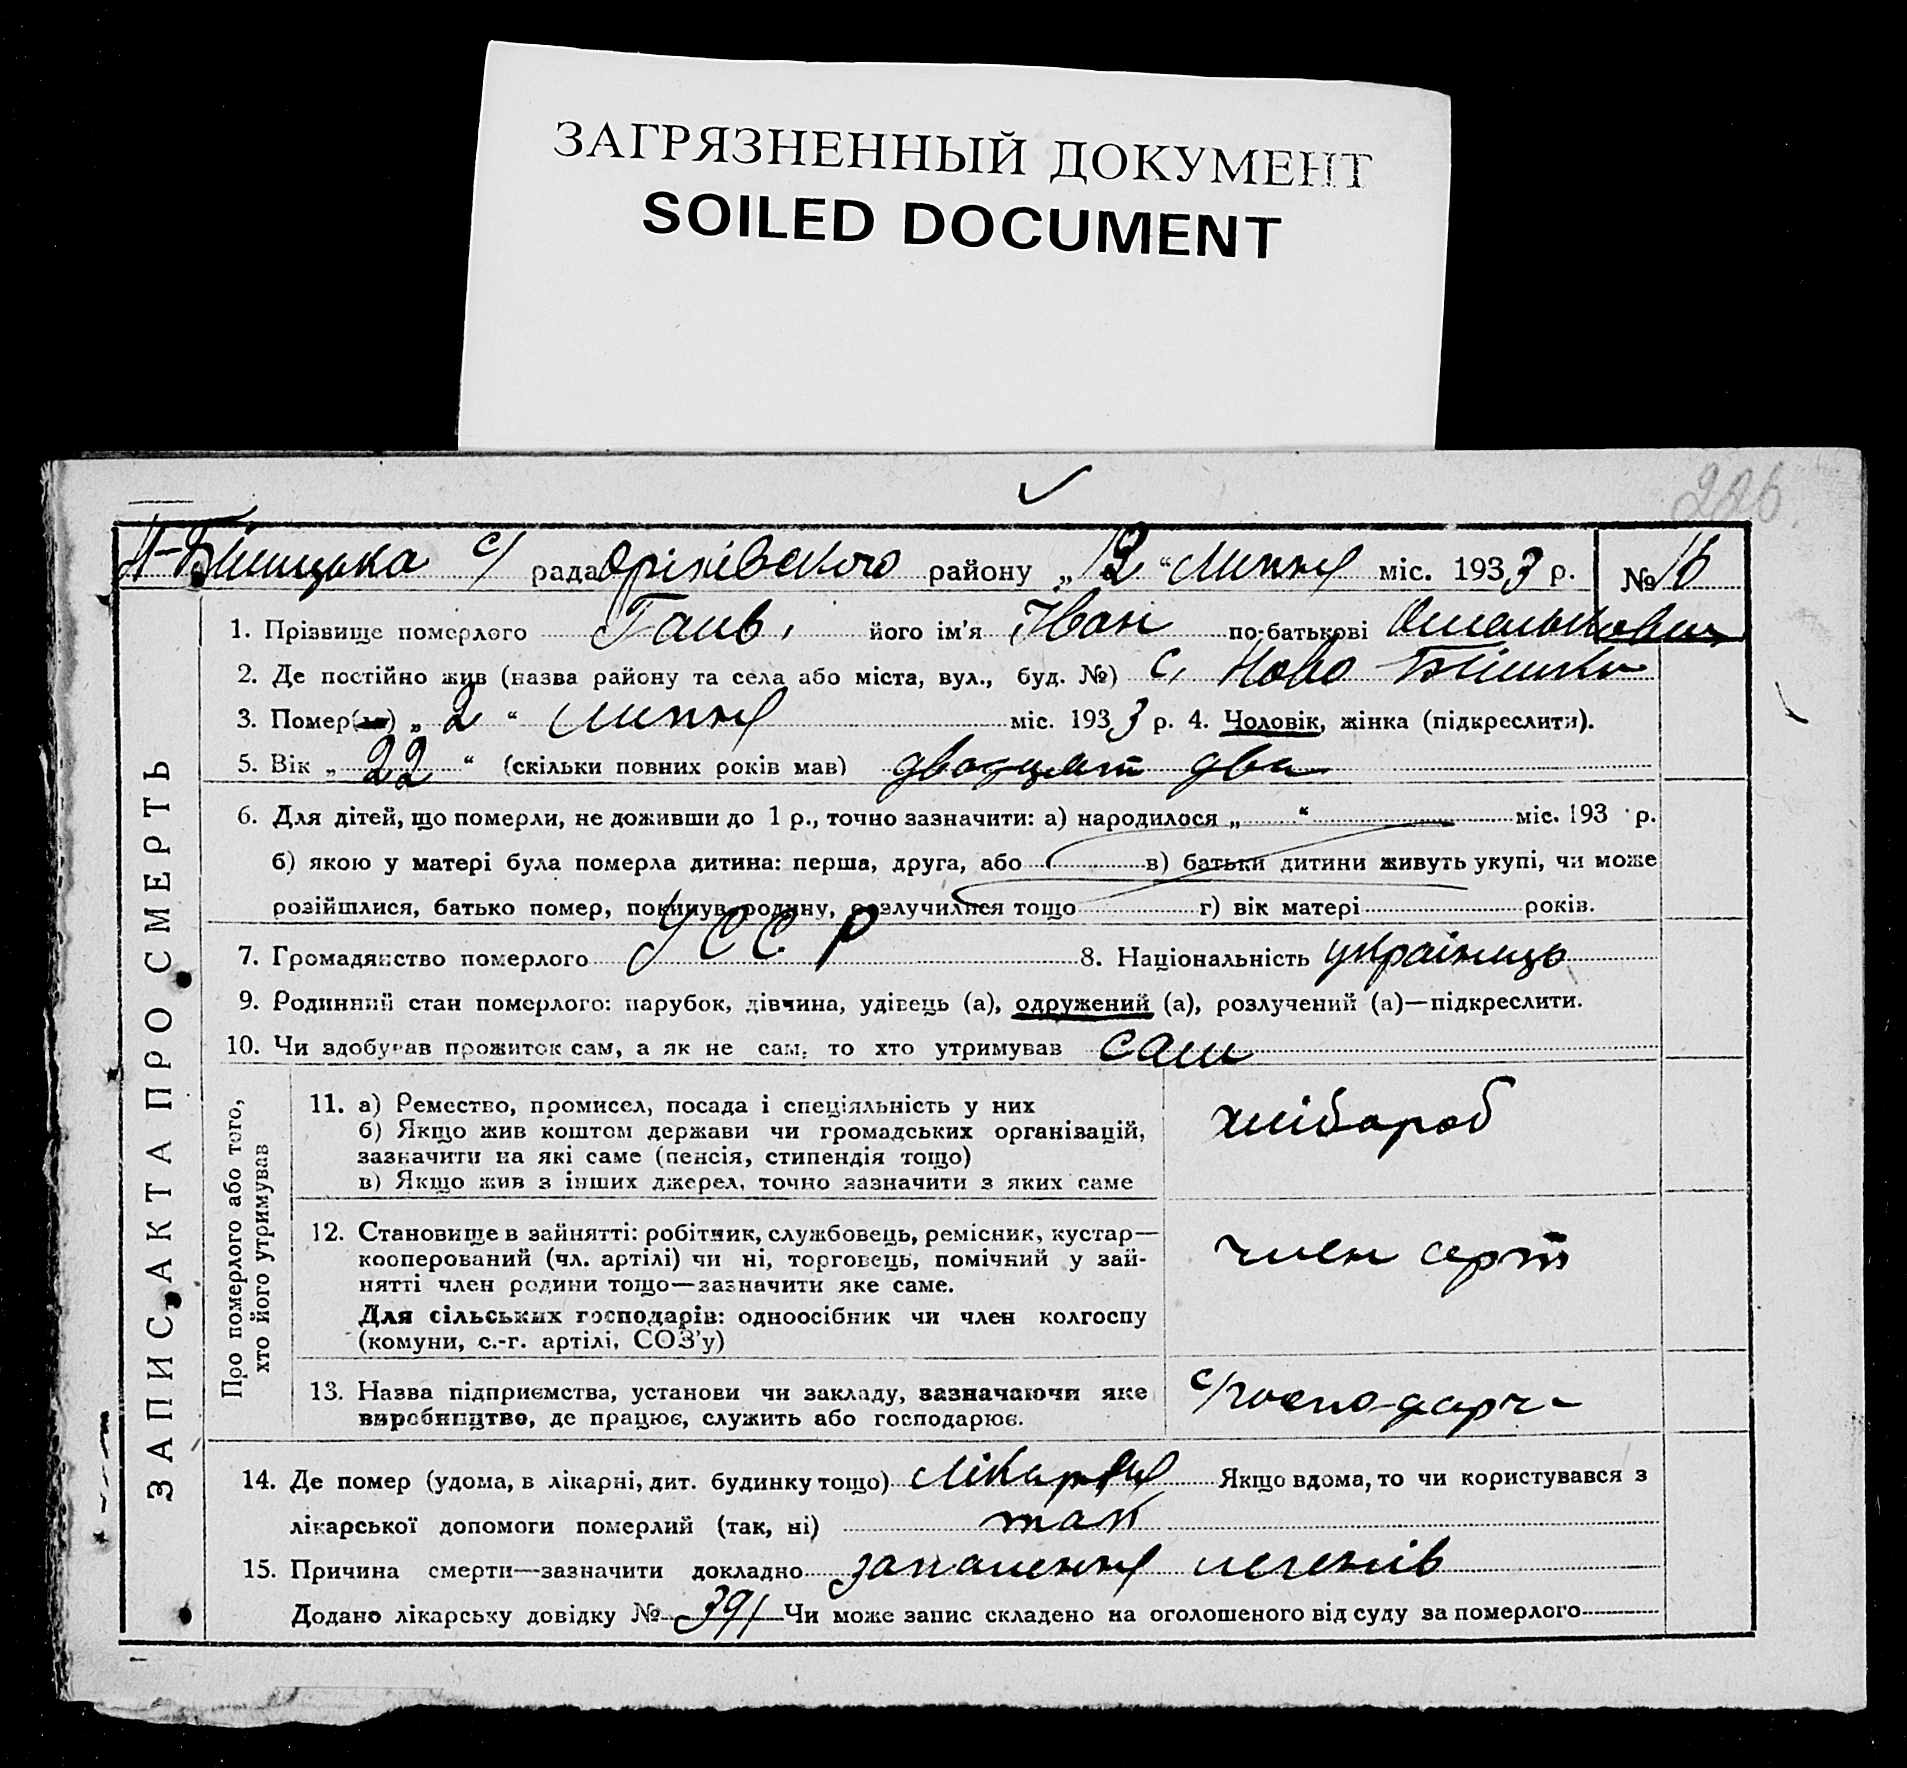 ЗАГРЯЗНЕННЫЙ ДОКУМЕНТ
SOILED DOCUMENT
226
с/ рада Оріхівського району „12“ Липня міс. 1933 р. № 16
1. Прізвище померлого його ім'я Іван по-батькові
2. Де постійно жив (назва району та села або міста, вул., буд. №) с. Ново
3. Помер(ла) „2“ липня міс. 1933 р. 4. Чоловік, жінка (підкреслити).
5. Вік „22“ (скільки повних років мав) двадцят два
6. Для дітей, що померли, не доживши до 1 р., точно зазначити: а) народилося „ “ міс. 193 р.
б) якою у матері була померла дитина: перша, друга, або в) батьки дитини живуть укупі, чи може
розійшлися, батько помер, покинув родину, розлучилися тощо г) вік матері років.
7. Громадянство померлого УССР 8. Національність українець
9. Родинний стан померлого: парубок, дівчина, удівець (а), одружений (а), розлучений (а)—підкреслити.
10. Чи здобував прожиток сам, а як не сам, то хто утримував сам
11. а) Ремество, промисел, посада і спеціяльність у них
б) Якщо жив коштом держави чи громадських організацій,
зазначити на які саме (пенсія, стипендія тощо)
в) Якщо жив з інших джерел, точно зазначити з яких саме
хлібороб
12. Становище в зайнятті: робітник, службовець, ремісник, кустар—
кооперований (чл. артілі) чи ні, торговець, помічний у зай-
нятті член родини тощо—зазначити яке саме.
Для сільських господарів: одноосібник чи член колгоспу
(комуни, с.-г. артілі, СОЗ'у)
член арт
13. Назва підприємства, установи чи закладу, зазначаючи яке
виробництво, де працює, служить або господарює.
с/господарч-
14. Де помер (удома, в лікарні, дит. будинку тощо) Лікарня Якщо вдома, то чи користувався з
лікарської допомоги померлий (так, ні) так
15. Причина смерти—зазначити докладно запалення легенів
Додано лікарську довідку № 391 Чи може запис складено на оголошеного від суду за померлого
ЗАПИС АКТА ПРО СМЕРТЬ
Про померлого або того,
хто його утримував